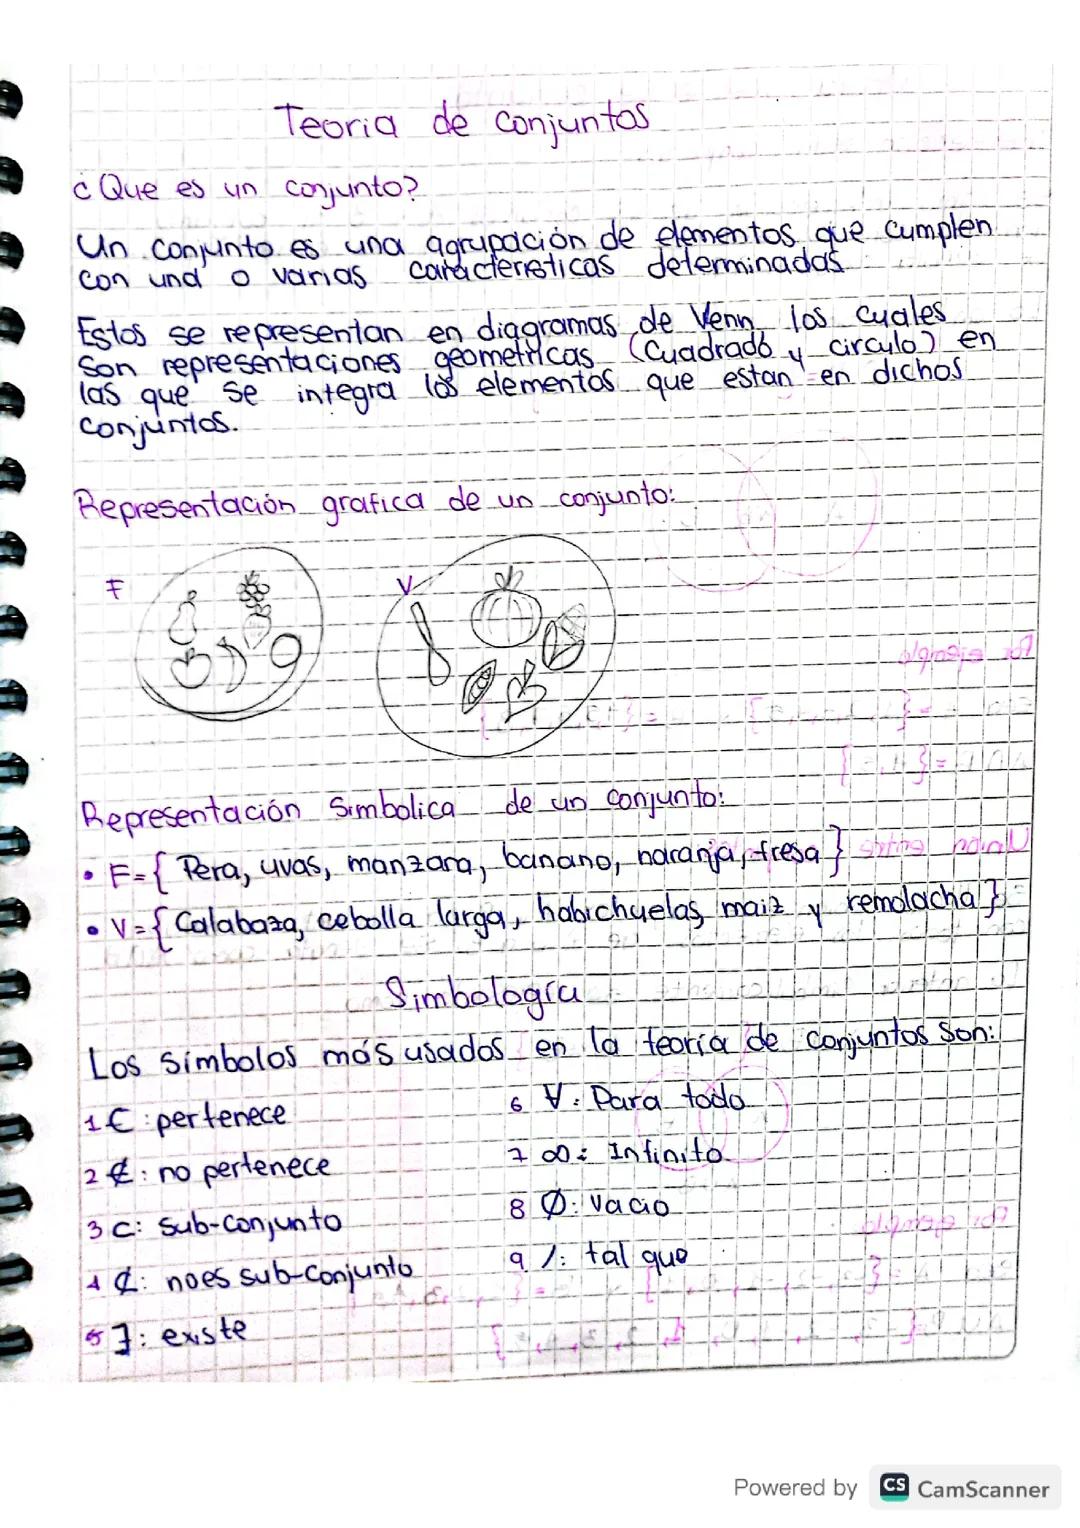 Teoria de conjuntos
¿Que es un conjunto?
Un conjunto es una agrupación de elementos que cumplen
con una o varias características determinadas
Estos se representan en diagramas de Venn, los cuales
Son representaciones geometricas (Cuadrado y circulo) en
las que se integra los elementos que estan en dichos
conjuntos.
Representación grafica de un conjunto:
F
V
Representación Simbolica de un conjunto:
• F={ Pera, uvas, manzana, banano, naranja, fresa }
• V={ Calabaza, cebolla larga, habichuelas, maiz y remolacha }
Simbología
Los símbolos más usados en la teoría de conjuntos Son:
1 ∈ : pertenece
2 ∉ : no pertenece
3 ⊂: sub-conjunto
4 ⊄: no es sub-conjunto
5 ∃: existe
6 ∀: Para todo
7 ∞: Infinito
8 Ø: Vacio
9 /: tal que
Powered by CS CamScanner